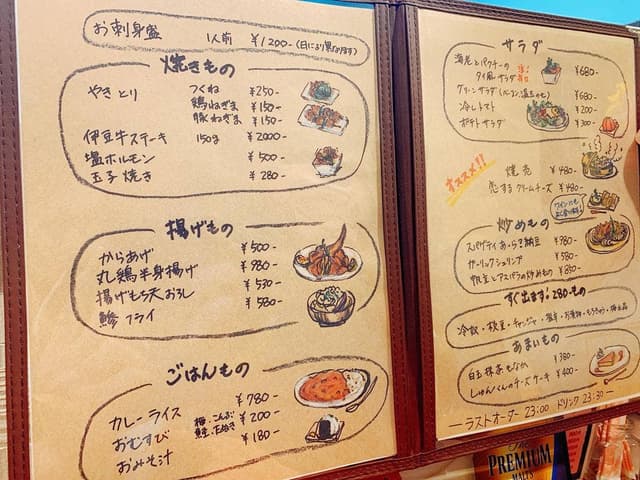 お刺身盛 1人前 ¥1200-(日により異なります)
焼きもの
やきとり つくね ¥250-
鶏ねぎま ¥150-
豚ねぎま ¥150-
伊豆牛ステーキ 150g ¥2000-
塩ホルモン ¥500-
玉子焼き ¥280-
揚げもの
からあげ ¥500-
丸鶏半身揚げ ¥980-
揚げもち天おろし ¥530-
鯵フライ ¥580-
ごはんもの
カレーライス ¥780-
おむすび 梅・こんぶ ¥200-
鮭・
おみそ汁 ¥180-
サラダ
海老とパクチーの
タイ風サラダ ¥680-
グリーンサラダ(ベーコン・温玉のせ) ¥680-
冷しトマト ¥200-
ポテトサラダ ¥300-
オススメ!!
焼売 ¥480-
恋するクリームチーズ ¥480-
ワインにも
炒めもの
スパゲティ 納豆 ¥980-
ガーリックシュリンプ ¥580-
とアスパラの炒めもの ¥850-
すぐ出ます!280-もの
冷奴・枝豆・チャンジャ・
あまいもの
白玉抹茶もなか ¥380-
しゅんくんのチーズケーキ ¥400-
ーラストオーダー 23:00 ドリンク 23:30ー
The
PREMIUM
MALT'S